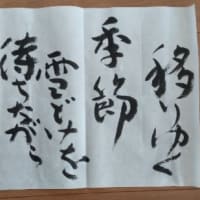 移りゆく
季節
雪どけを
待ちながら